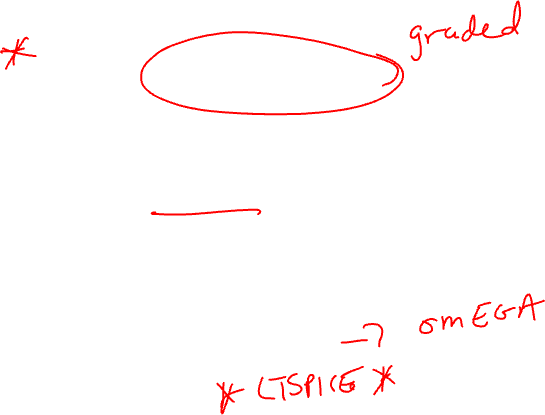 * graded
→ OMEGA
* LTSPICE *